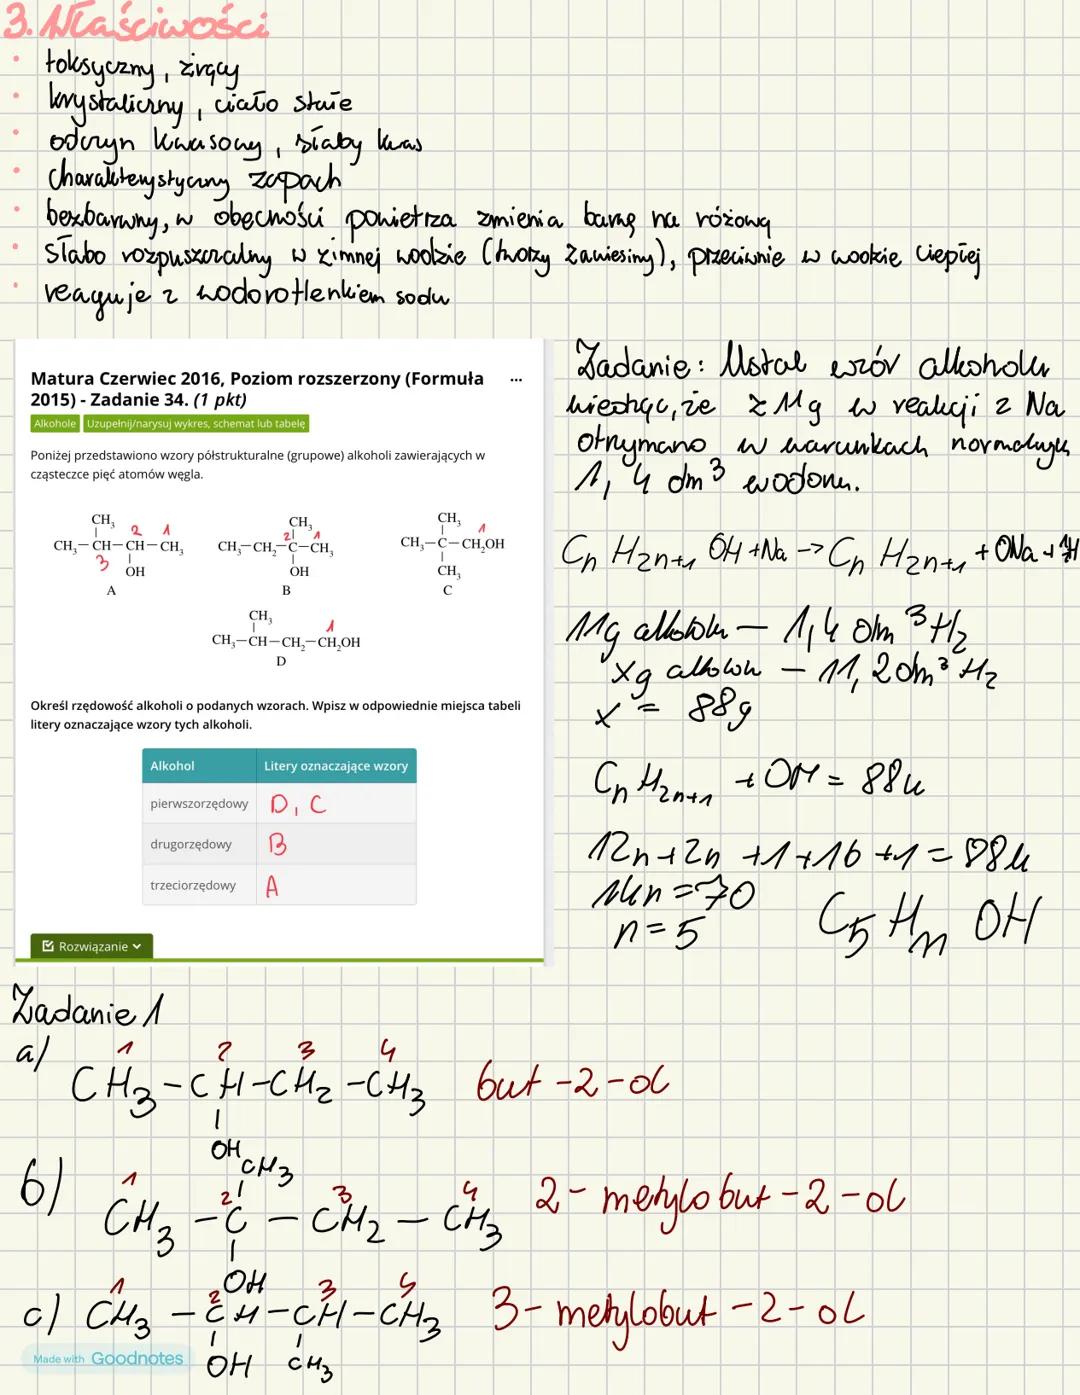 3. Właściwości
• toksyczny, żrący
• krystaliczny, ciało stałe
• odczyn kwasowy, słaby kwas
• charakterystyczny zapach
• bezbarwny, w obecności powietrza zmienia barwę na różową
• słabo rozpuszczalny w zimnej wodzie (tworzy zawiesiny), przeciwnie w wodzie ciepłej
• reaguje z wodorotlenkiem sodu
Matura Czerwiec 2016, Poziom rozszerzony (Formuła
2015) - Zadanie 34. (1 pkt)
...
Alkohole Uzupełnij/narysuj wykres, schemat lub tabelę
Poniżej przedstawiono wzory półstrukturalne (grupowe) alkoholi zawierających w
cząsteczce pięć atomów węgla.
CH₃ 2 1
CH₃—CH—CH—CH₃
3 OH
A
CH₃
2 1
CH₃—CH₂—C—CH₃
OH
B
CH₃ 1
CH₃—C—CH₂OH
CH₃
C
CH₃ 1
CH₃—CH—CH₂—CH₂OH
D
Określ rzędowość alkoholi o podanych wzorach. Wpisz w odpowiednie miejsca tabeli
litery oznaczające wzory tych alkoholi.
Alkohol Litery oznaczające wzory
pierwszorzędowy D, C
drugorzędowy B
trzeciorzędowy A
Rozwiązanie
Zadanie: Ustal wzór alkoholu
wiedząc, że z 11g w reakcji z Na
otrzymano w warunkach normalnych
1,4 dm³ wodoru.
CₙH₂ₙ₊₁OH + Na -> CₙH₂ₙ₊₁ + ONa +
11g alkoholu — 1,4 dm³ H₂
xg alkoholu — 11,2 dm³ H₂
x = 88g
CₙH₂ₙ₊₁ + OH = 88u
12n + 2n + 1 + 16 + 1 = 88u
14n = 70
n = 5 C₅H₁₁OH
Zadanie 1
a) 1 2 3 4
CH₃ - CH - CH₂ - CH₃ but-2-ol
OH
CH₃
b) 1 2 3 4
CH₃ - C - CH₂ - CH₃ 2-metylobut-2-ol
OH
1 2 3 4
c) CH₃ - CH - CH - CH₃ 3-metylobut-2-ol
OH CH₃
Made with Goodnotes